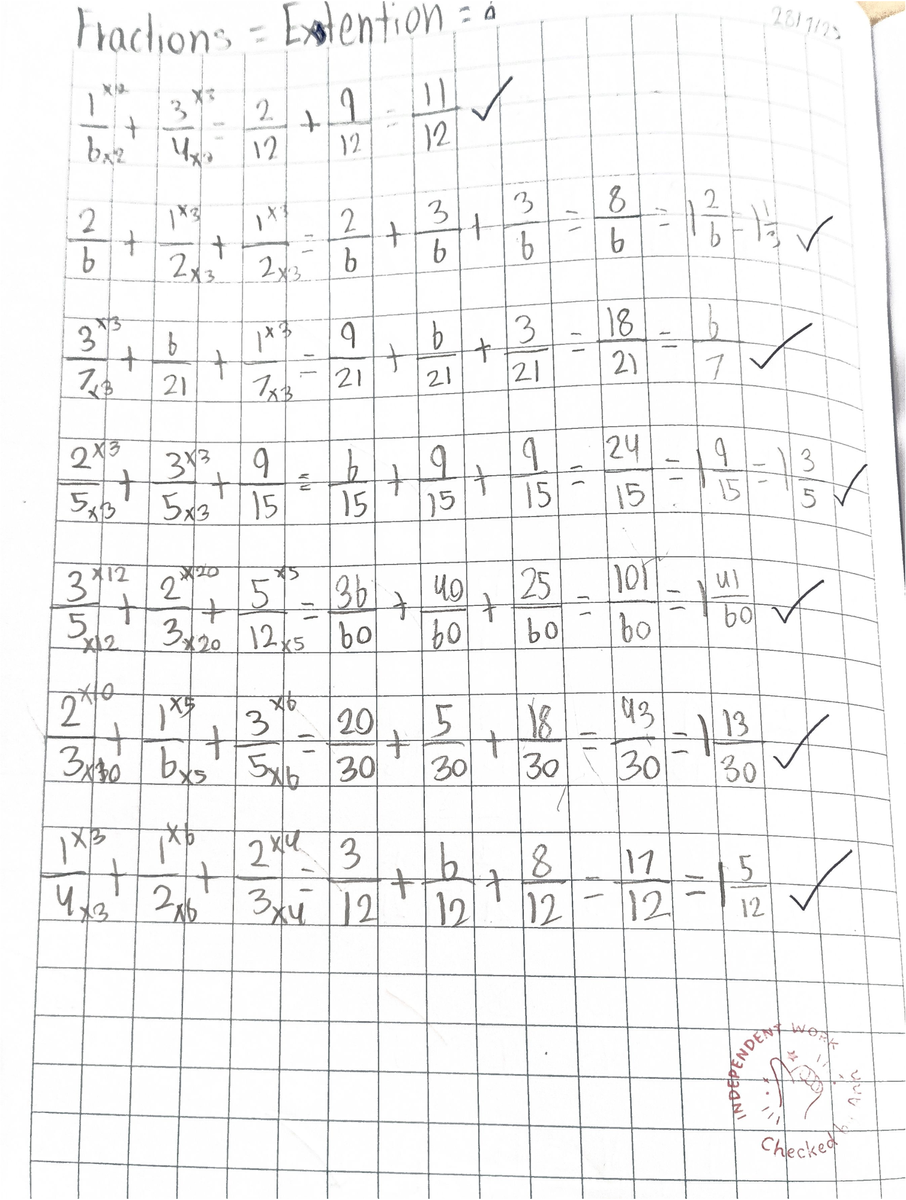 Fractions = Extention =
28/7/23
1×2/6×2 + 3×3/4×3 = 2/12 + 9/12 = 11/12 ✓
2/6 + 1×3/2×3 + 1×3/2×3 = 2/6 + 3/6 + 3/6 = 8/6 = 1 2/6 = 1 1/3 ✓
3×3/7×3 + 6/21 + 1×3/7×3 = 9/21 + 6/21 + 3/21 = 18/21 = 6/7 ✓
2×3/5×3 + 3×3/5×3 + 9/15 = 6/15 + 9/15 + 9/15 = 24/15 = 1 9/15 = 1 3/5 ✓
3×12/5×12 + 2×20/3×20 + 5×5/12×5 = 36/60 + 40/60 + 25/60 = 101/60 = 1 41/60 ✓
2×10/3×10 + 1×5/6×5 + 3×6/5×6 = 20/30 + 5/30 + 18/30 = 43/30 = 1 13/30 ✓
1×3/4×3 + 1×6/2×6 + 2×4/3×4 = 3/12 + 6/12 + 8/12 = 17/12 = 1 5/12 ✓
INDEPENDENT WORK
Checked